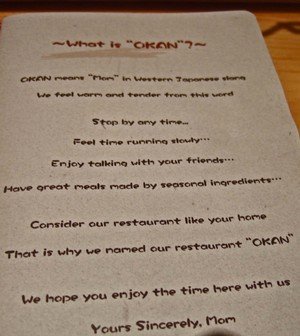 ~What is "OKAN"?~
OKAN means "Mom" in Western Japanese slang
We feel warm and tender from this word
Stop by any time...
Feel time running slowly...
Enjoy talking with your friends...
Have great meals made by seasonal ingredients...
Consider our restaurant like your home
That is why we named our restaurant "OKAN"
We hope you enjoy the time here with us
Yours Sincerely, Mom